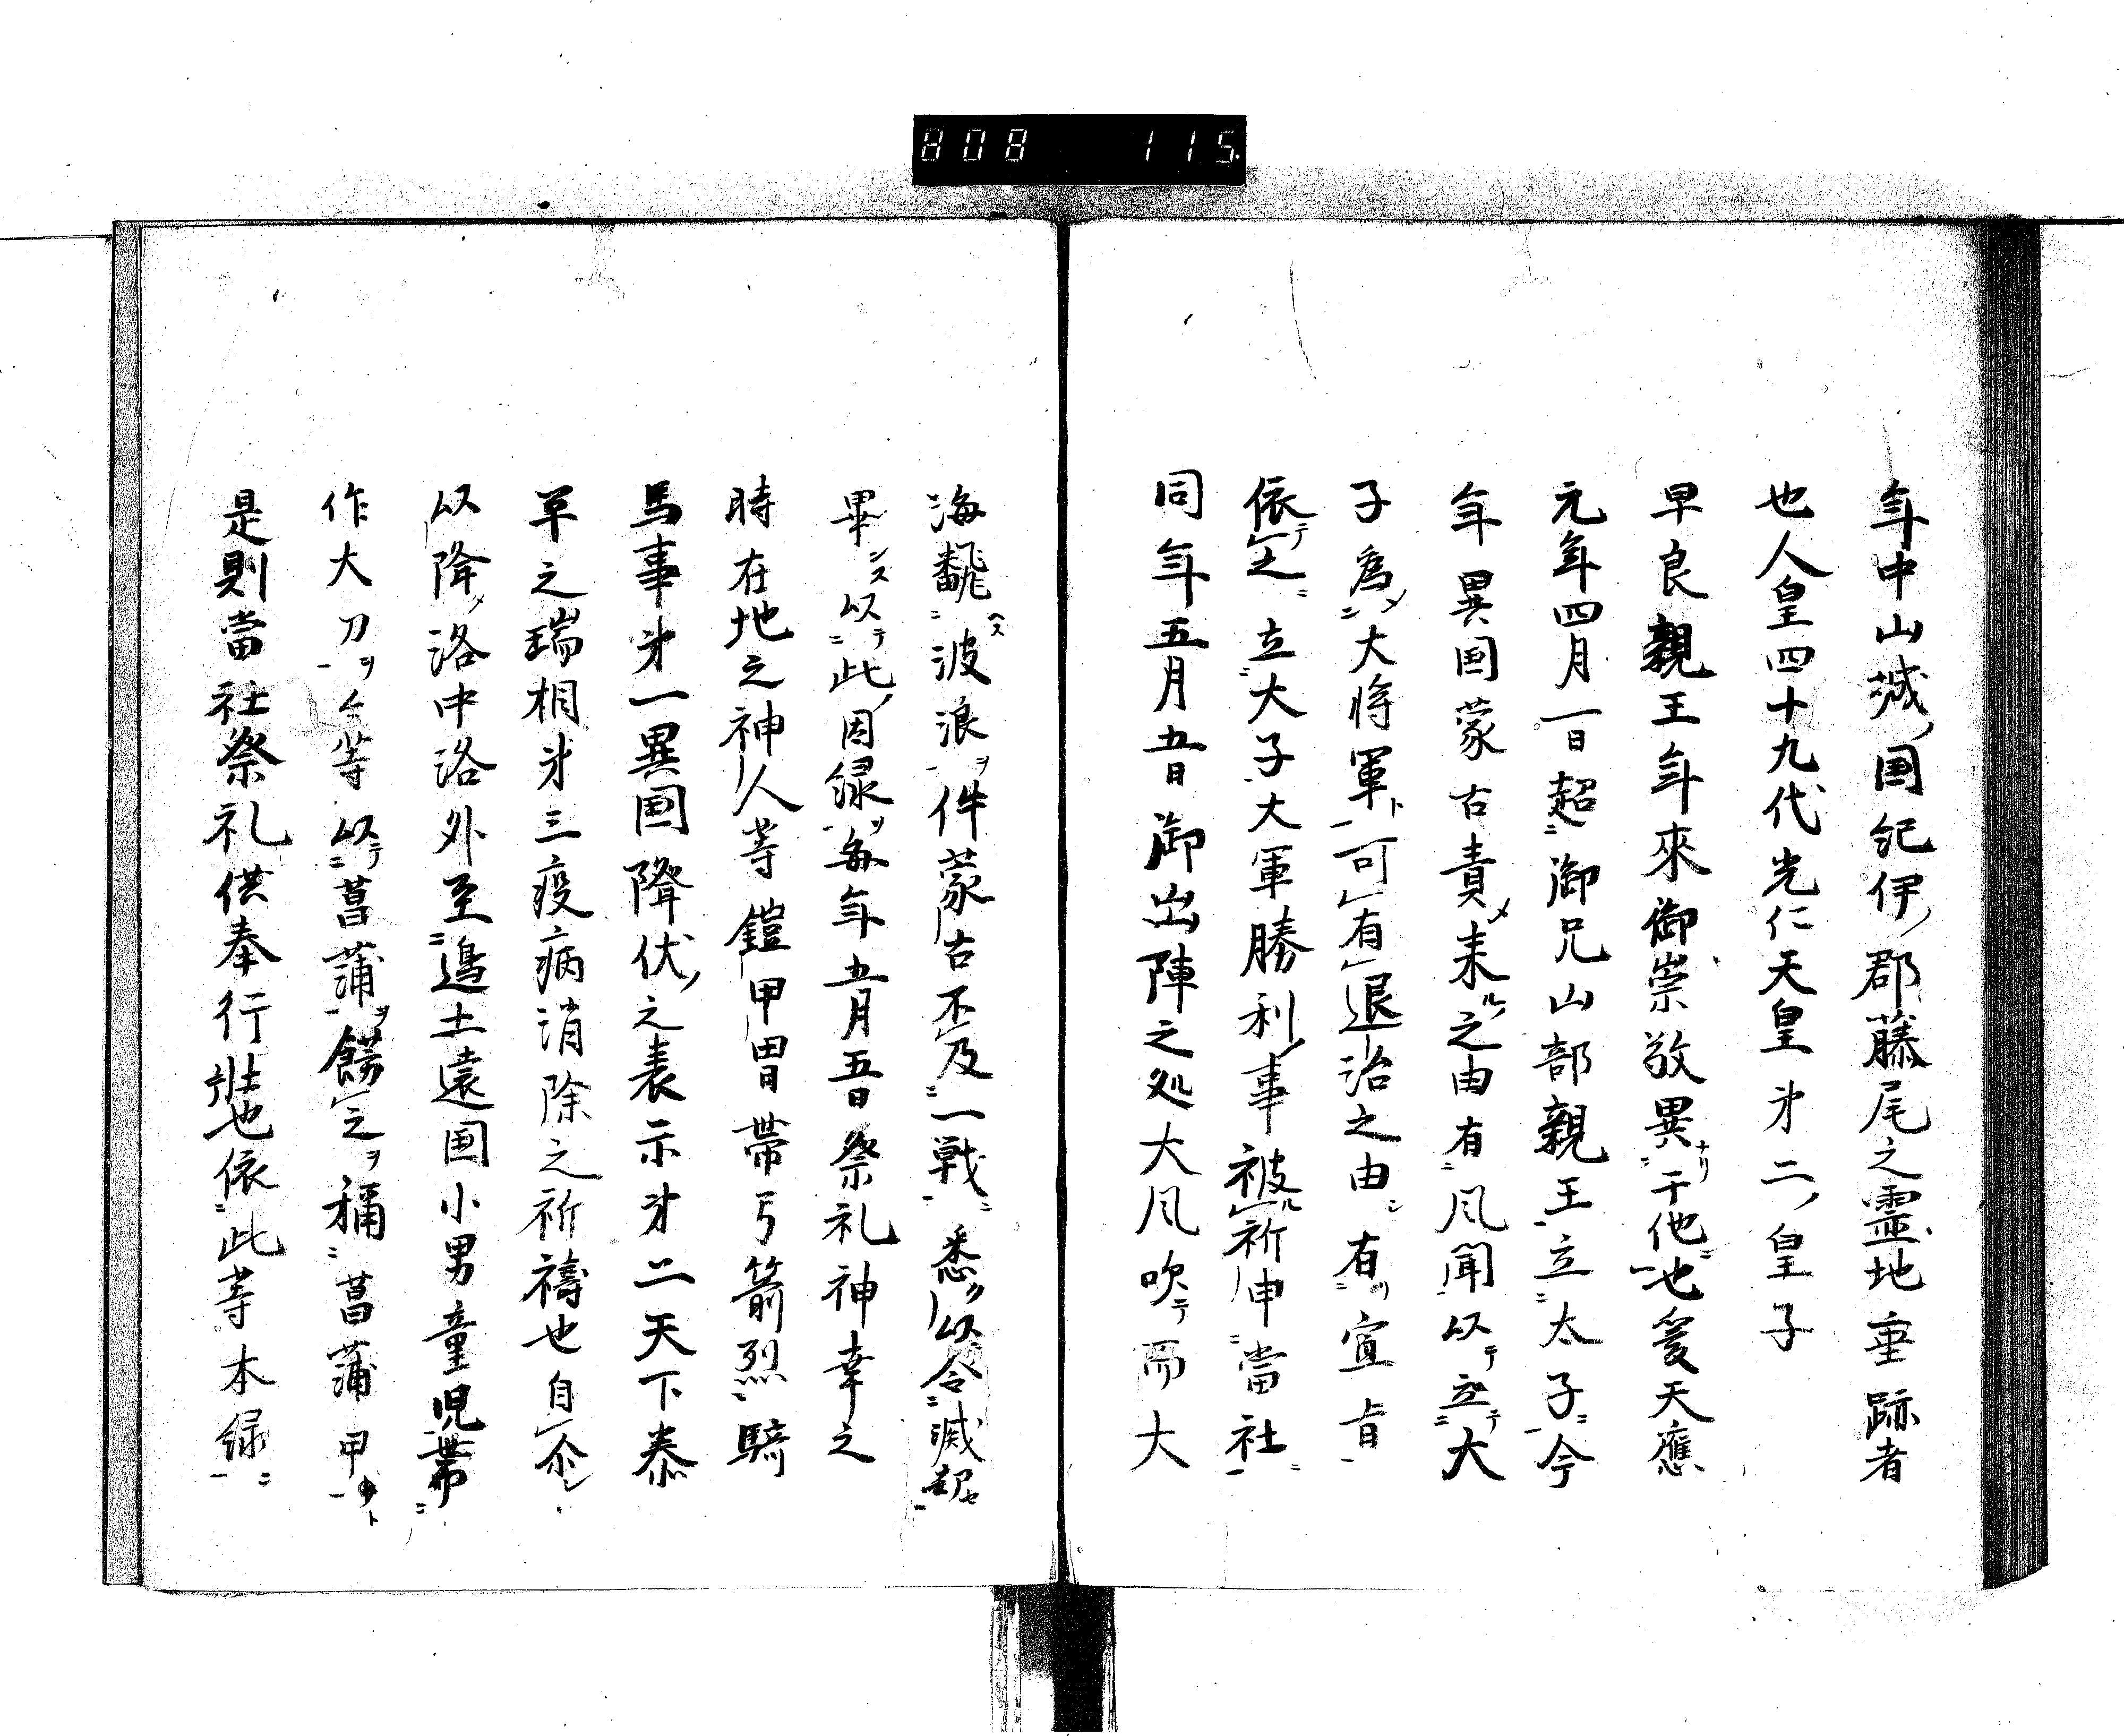 808 115
年中山城国紀伊郡藤尾之霊地垂跡者
也人皇四十九代光仁天皇㐧二皇子
早良親王年来御崇敬異ナリ于他ニ也爰天應
元年四月一日超御兄山部親王立太子ニ今
年異国蒙古責メ来ルノ之由有風聞以テ立テ大
子為メニ大将軍ト可有退治之由有リ宣旨
依テ之ニ立大子大軍勝利ノ事被ル祈申當社ニ
同年五月五日御出陣之処大風吹テ而大
海飜ヘス波浪ヲ件蒙古不及一戦ニ悉ク以令滅却セ
畢ンヌ以テ此因縁ヲ毎年五月五日祭礼神幸之
時在地之神人等鎧甲冑帯弓箭烈騎
馬事㐧一異国降伏之表示㐧二天下泰
平之瑞相㐧三疫病消除之祈祷也自尒
以降洛中洛外至邉土遠国小男童児帯
作大刀ヲ等以テ菖蒲ヲ餝之ヲ稱菖蒲甲ト
是則當社祭礼供奉行粧也依此等本縁ニ